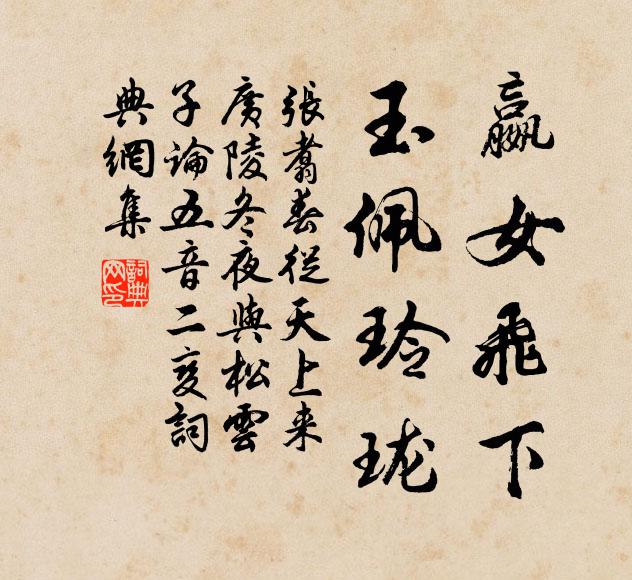 嬴女飛下
玉佩玲珑
張翥春從天上来
廣陵冬夜與松雲
子論五音二变詞
典網集
詞典网印